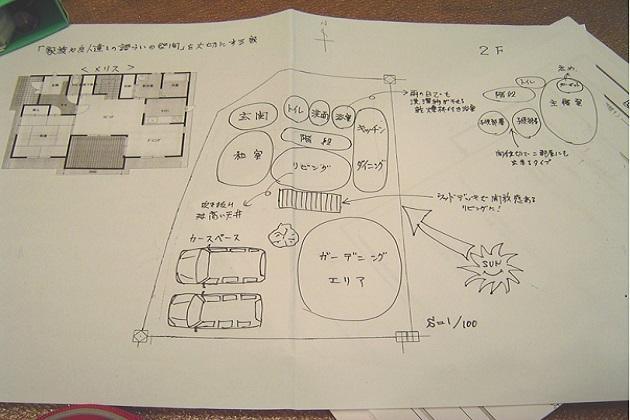 「家族や友人達との語らいの空間」を大切にする家
<メリス>
2F
玄関
トイレ
洗面
浴室
キッチン
ダイニング
階段
和室
リビング
吹き抜け
高い天井
カースペース
ガーデニング
エリア
雨の日でも
洗濯物が干せる
乾燥機付き浴室
ウッドデッキで開放感ある
リビングに!
SUN
S=1/100
トイレ
階段
子供部屋
子供部屋
主寝室
間仕切で二部屋にも
出来るタイプ